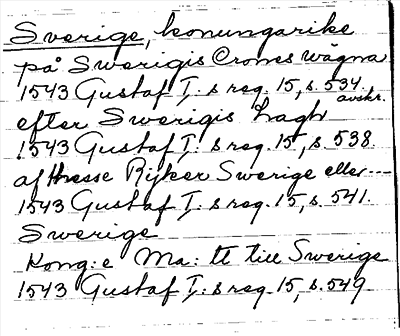 Sverige, konungarike
på Swerigis Crones wägna
1543 Gustaf I: s reg. 15, s. 534.
avskr.
efter Swerigis Lagh
1543 Gustaf I: s reg. 15, s. 538
aff thesse Rijker Swerige eller ---
1543 Gustaf I: s reg. 15, s. 541.
Swerige
Kong:e Ma: tt till Swerige
1543 Gustaf I: s reg. 15, s. 549.